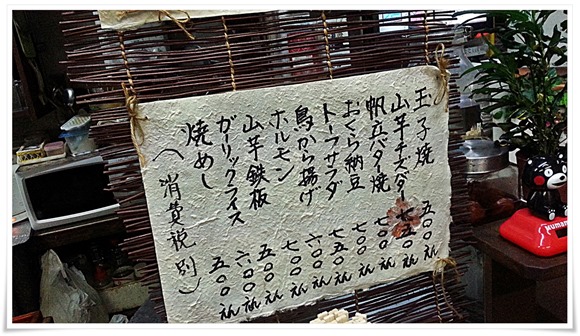 玉子焼 五〇〇えん
山芋チーズバター 七五〇えん
帆立バター焼 七〇〇えん
おくら納豆 七〇〇えん
トーフサラダ 七五〇えん
鳥から揚げ 六〇〇えん
ホルモン 七〇〇えん
山芋鉄板 五〇〇えん
ガリックライス 六〇〇えん
焼めし 五〇〇えん
(消費税別)